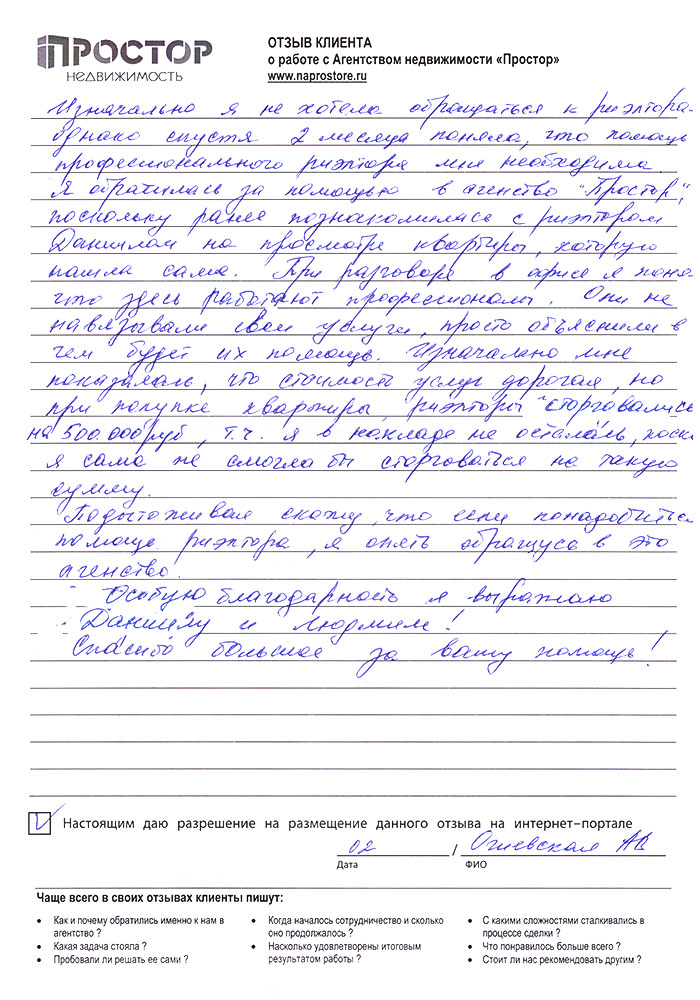 ПРОСТОР
НЕДВИЖИМОСТЬ
ОТЗЫВ КЛИЕНТА
о работе с Агентством недвижимости «Простор»
www.naprostore.ru
Изначально я не хотела обращаться к риэлтора
однако спустя 2 месяца поняла, что помощь
профессионального риэлтора мне необходима.
Я обратилась за помощью в агенство "Простор",
поскольку ранее познакомилась с риэлтором
Даниилом на просмотре квартиры, которую
нашла сама. При разговоре в офисе я поня-
что здесь работают профессионалы. Они не
навязывали свои услуги, просто объяснили в
чем будет их помощь. Изначально мне
показалась, что стоимость услуг дорогая, но
при покупке квартиры, риэлторы сторговались
на 500.000 руб, т.ч. я в накладе не осталась, поск
я сама не смогла бы сторговаться на такую
сумму.
Подытоживая скажу, что если понадобиться
помощь риэлтора, я опять обращусь в это
агенство.
Особую благодарность я выражаю
Даниилу и Людмиле!
Спасибо большое за вашу помощь!
Настоящим даю разрешение на размещение данного отзыва на интернет-портале
02 / Огиевская АВ
Дата ФИО
Чаще всего в своих отзывах клиенты пишут:
• Как и почему обратились именно к нам в
агентство ?
• Какая задача стояла ?
• Пробовали ли решать ее сами ?
• Когда началось сотрудничество и сколько
оно продолжалось ?
• Насколько удовлетворены итоговым
результатом работы ?
• С какими сложностями сталкивались в
процессе сделки ?
• Что понравилось больше всего ?
• Стоит ли нас рекомендовать другим ?